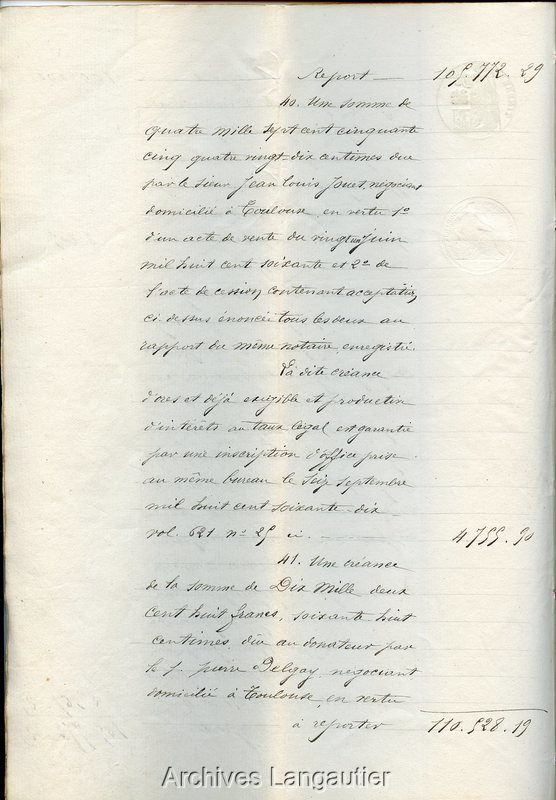 Report — 105.772.29
40. Une somme de
quatre mille sept cent cinquante
cinq quatre vingt dix centimes due
par le sieur Jean Louis négociant
domicilié à Toulouse, en vertu 1º
d'un acte de vente du vingt un Juin
mil huit cent soixante et 2º de
l'acte de cession contenant acceptation
ci dessus énoncé tous les deux au
rapport du même notaire, enregistré.
La dite créance
d'ores et déjà exigible et productive
d'intérêts au taux légal est garantie
par une inscription d'office prise
au même bureau le seize septembre
mil huit cent soixante dix
vol. 621 nº 25 ci. — 4755.90
41. Une créance
de la somme de Dix Mille deux
cent huit francs, soixante huit
centimes, due au donateur par
le s. pierre Delgay négociant
domicilié à Toulouse, en vertu
à reporter 110.528.19
Archives Langautier